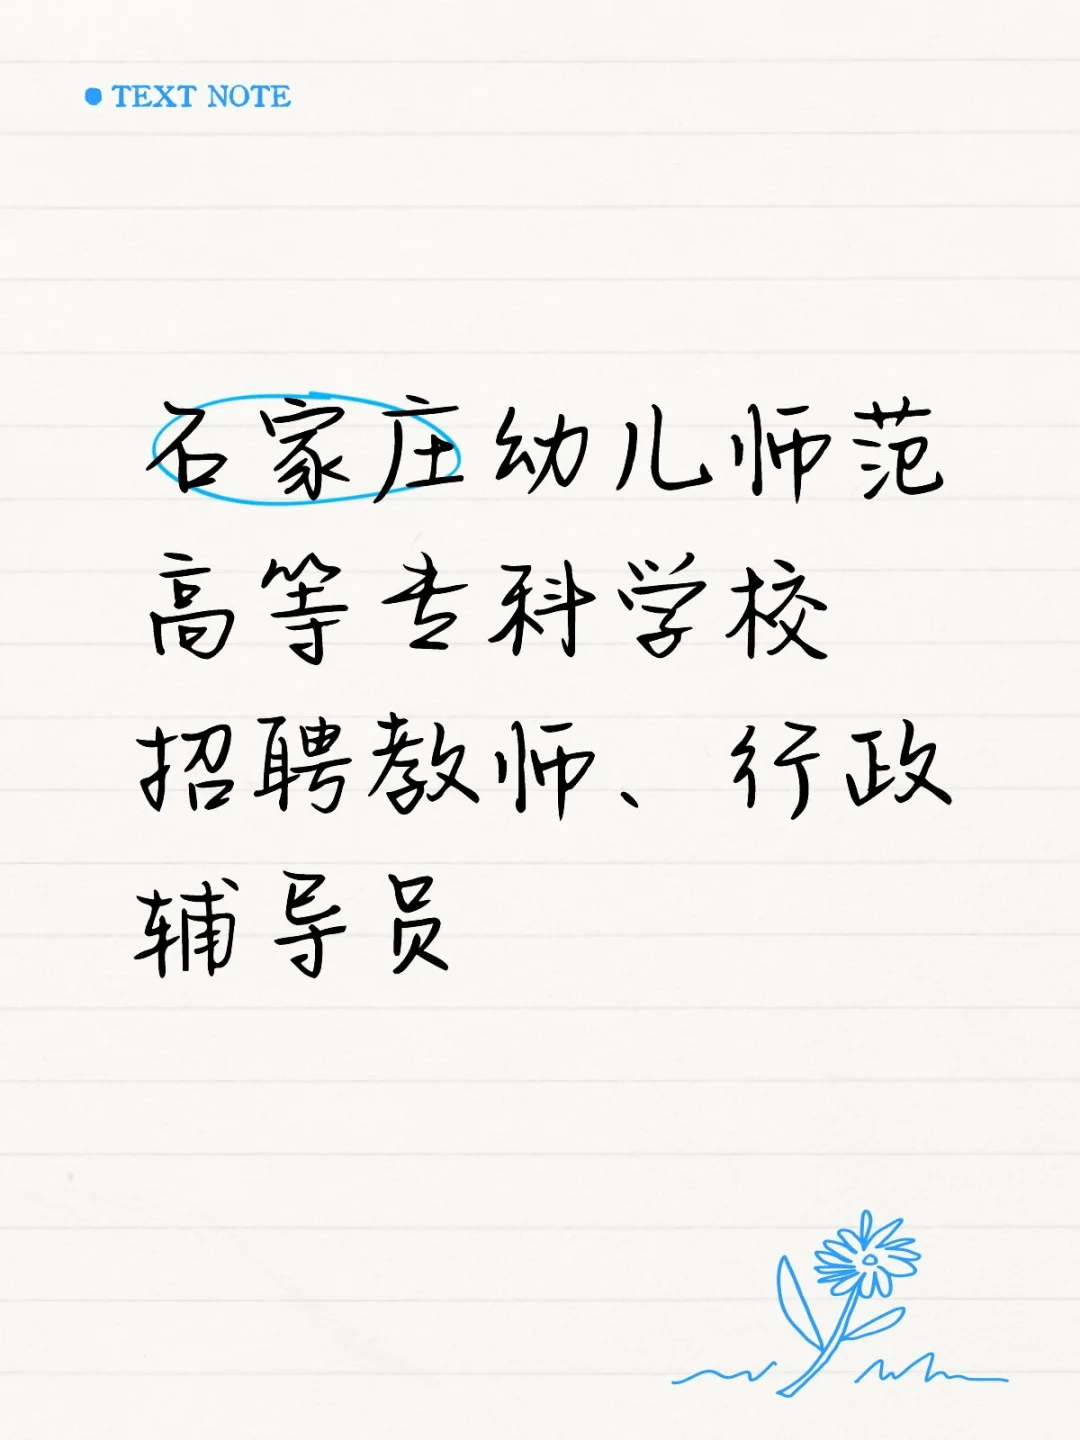 TEXT NOTE
石家庄幼儿师范
高等专科学校
招聘教师、行政
辅导员